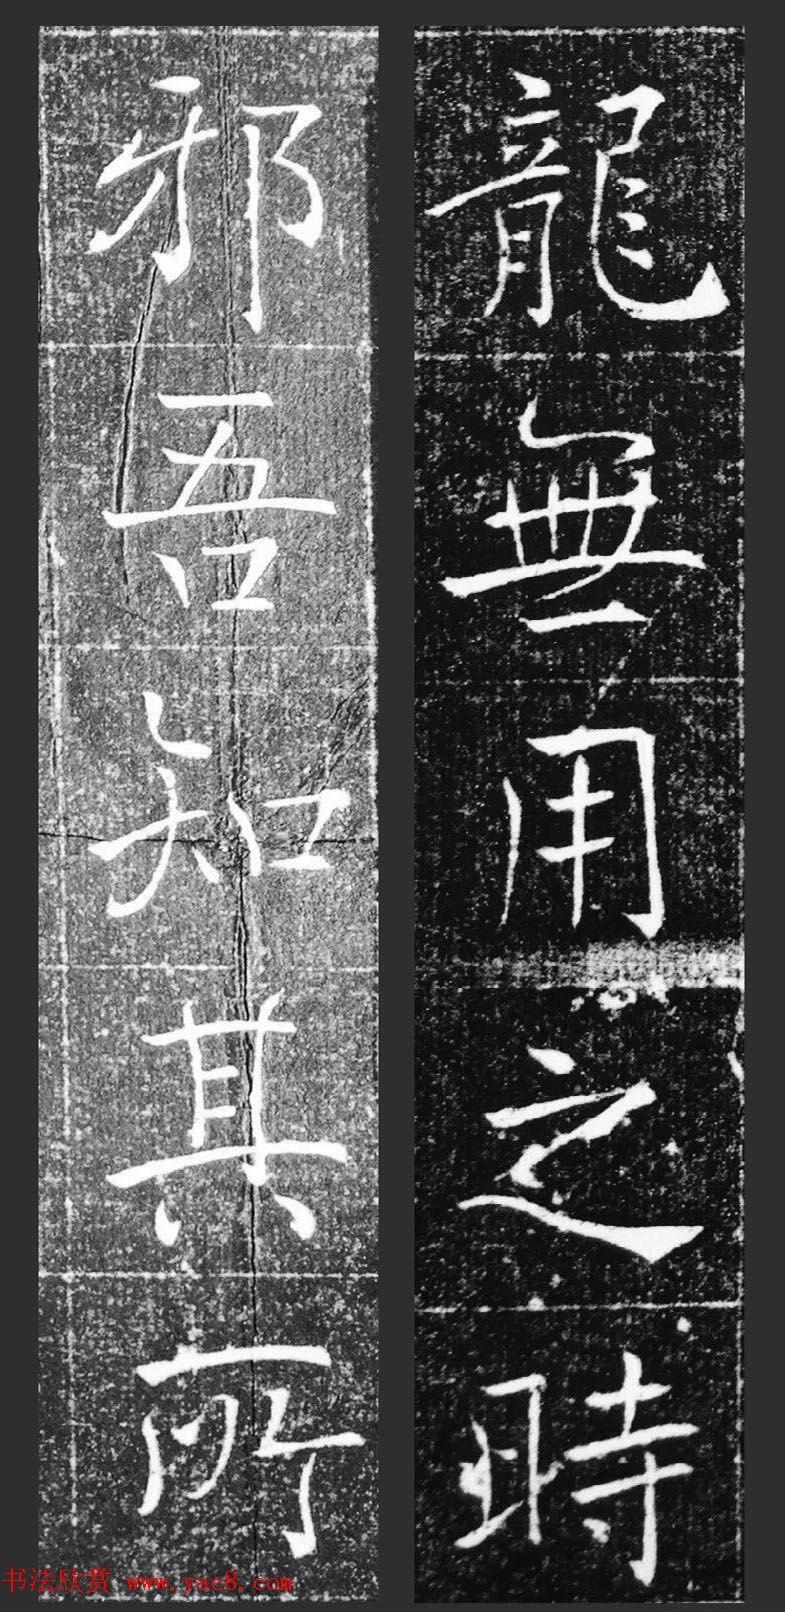 龍無用之時
邪吾知其所
书法欣赏 www.yac8.com